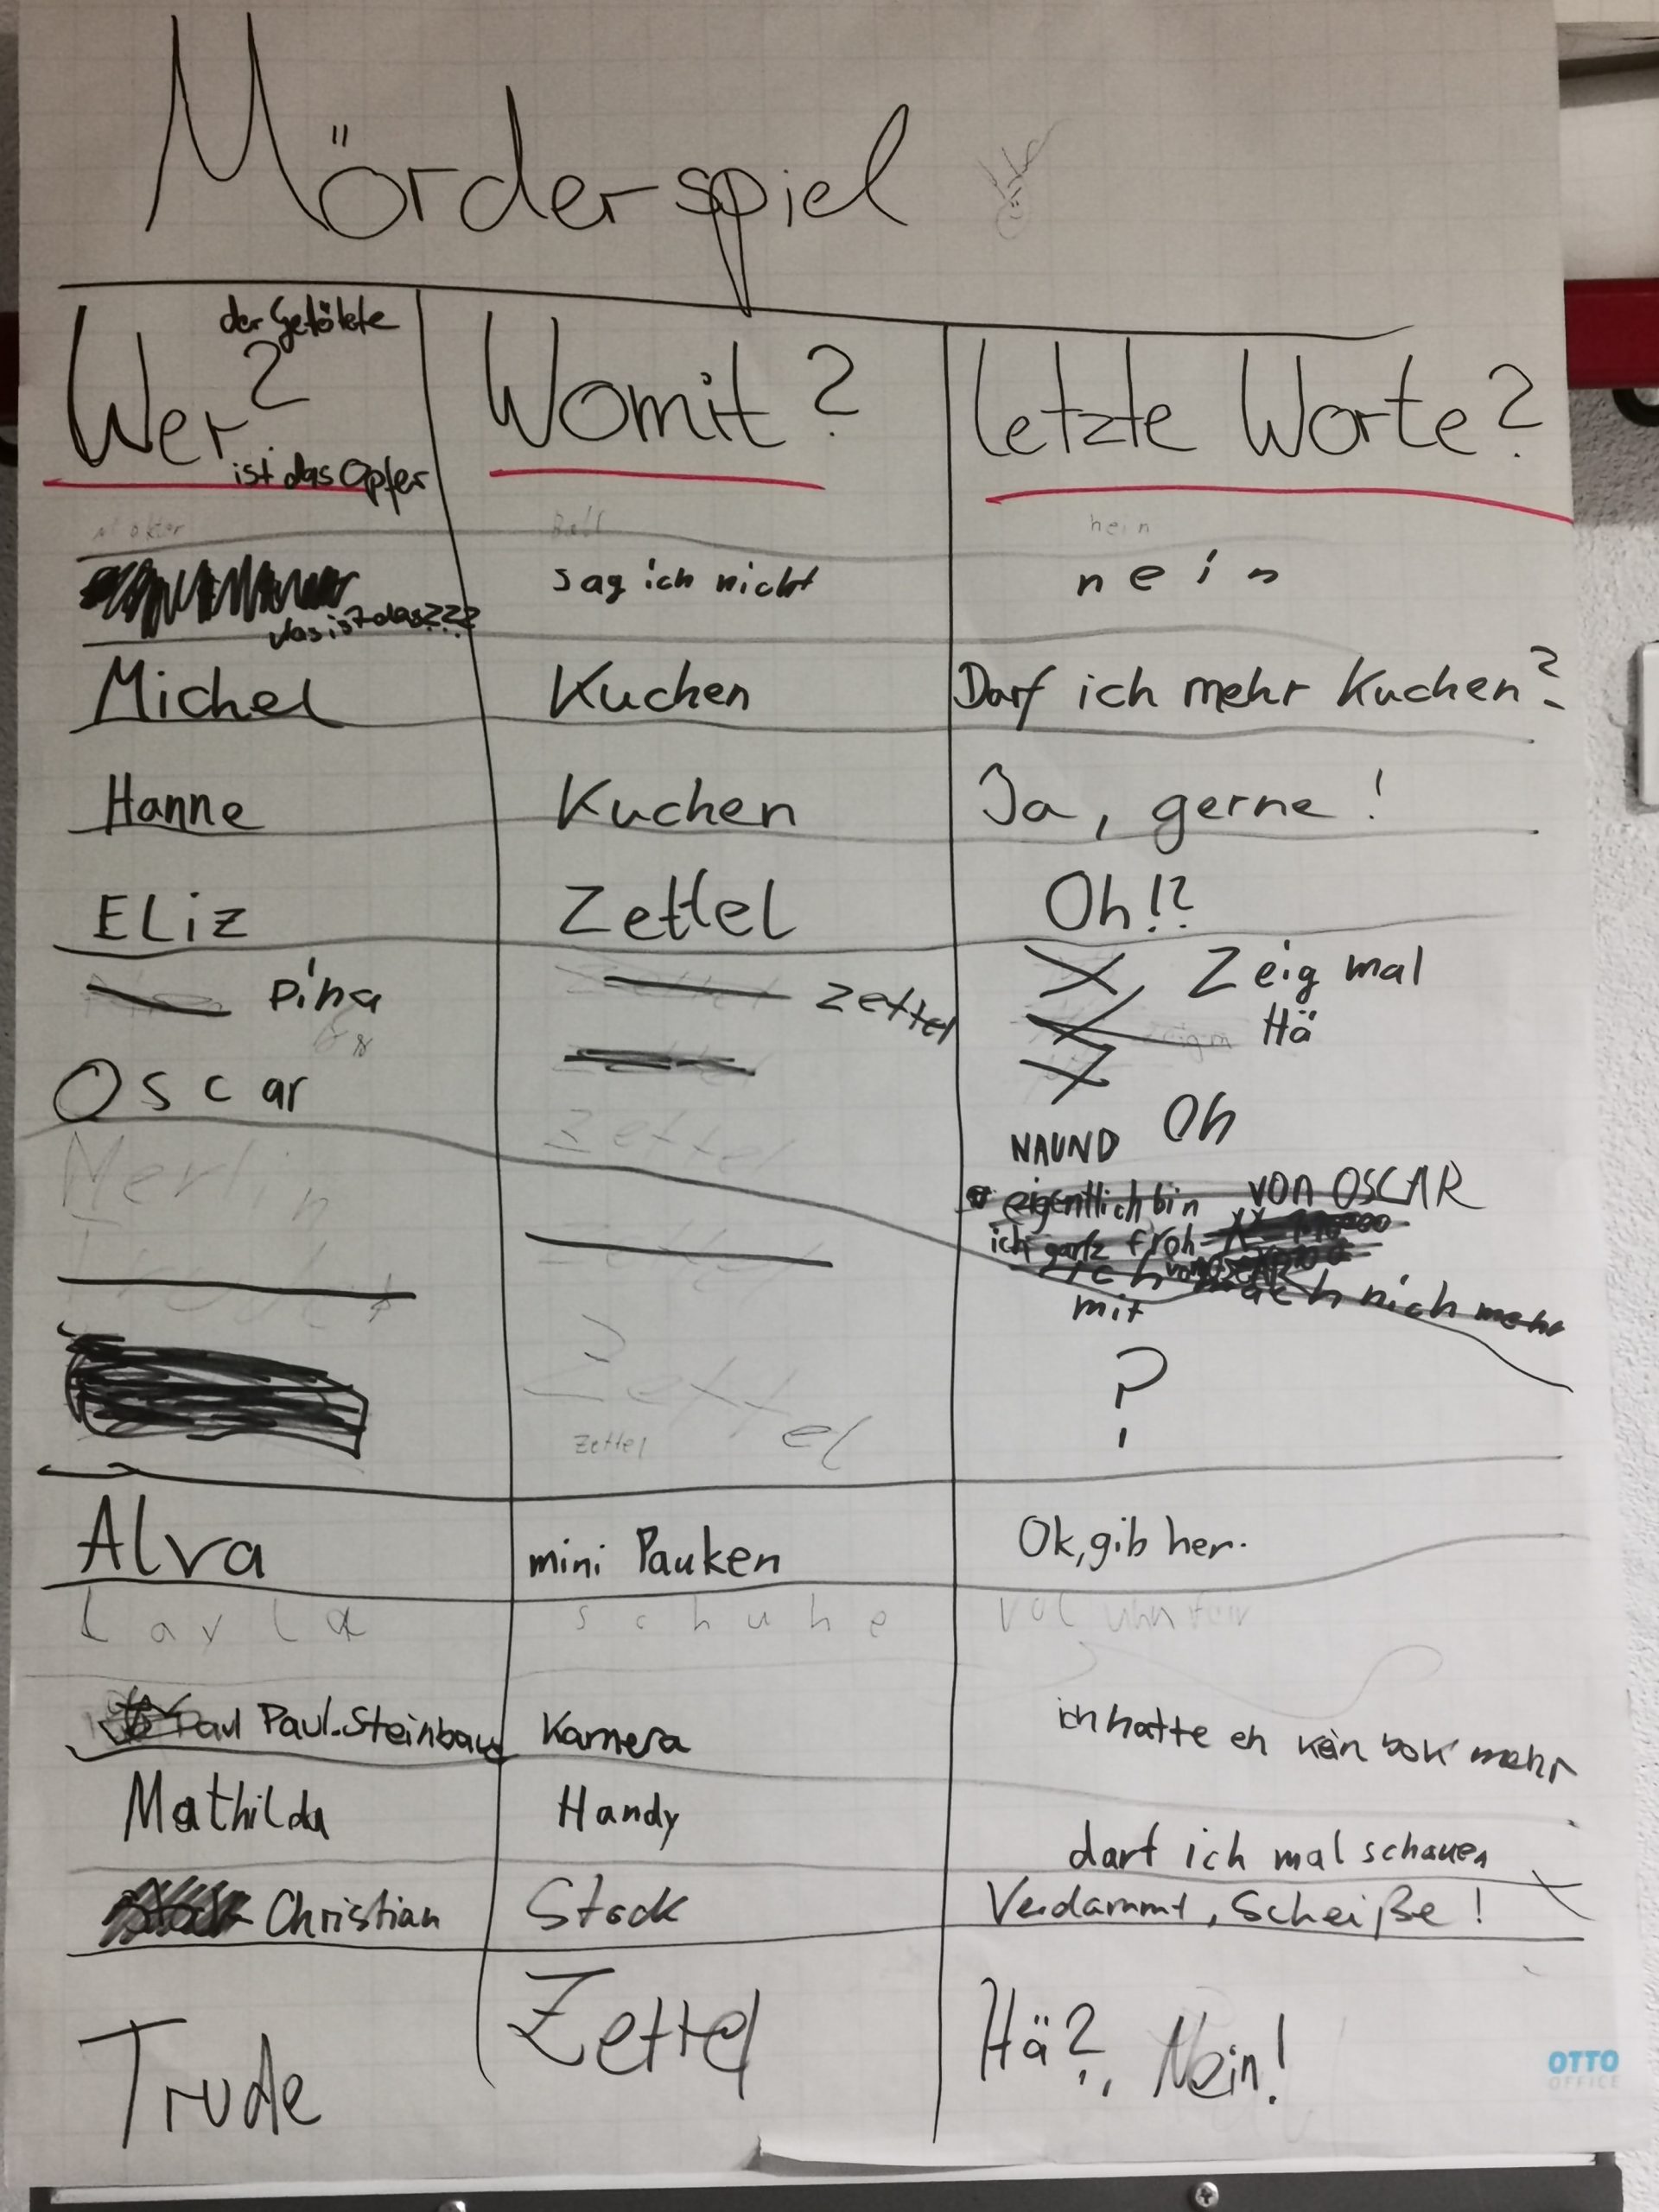 Mörderspiel
der Getötete
Wer? Womit? letzte Worte?
ist das Opfer
hein
sag ich nicht nein
was ist das???
Michel Kuchen Darf ich mehr Kuchen?
Hanne Kuchen Ja, gerne!
ELiz Zettel Oh!?
Pina Zettel Zeig mal
Hä
Oscar
Zettel Oh
Merlin NAUND
eigentlich bin von OSCAR
ich ganz froh
ich mach nich mehr
mit
Zettel ?
Zettel
Alva mini Pauken Ok, gib her.
Layla schuhe
Paul Paul.Steinbau Kamera ich hatte eh kein bok mehr
Mathilda Handy darf ich mal schauen
Stock Christian Stock Verdammt, Scheiße!
Trude Zettel Hä?, Nein!
OTTO
OFFICE